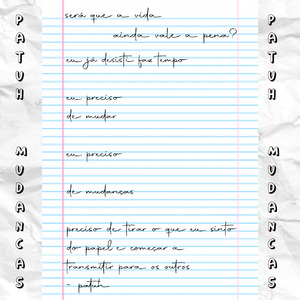 será que a vida
ainda vale a pena?
eu já desisti faz tempo
eu preciso
de mudar
eu preciso
de mudanças
preciso de tirar o que eu sinto
do papel e começar a
transmitir para os outros
- patuh
PATUH MUDANCAS
PATUH MUDANCAS